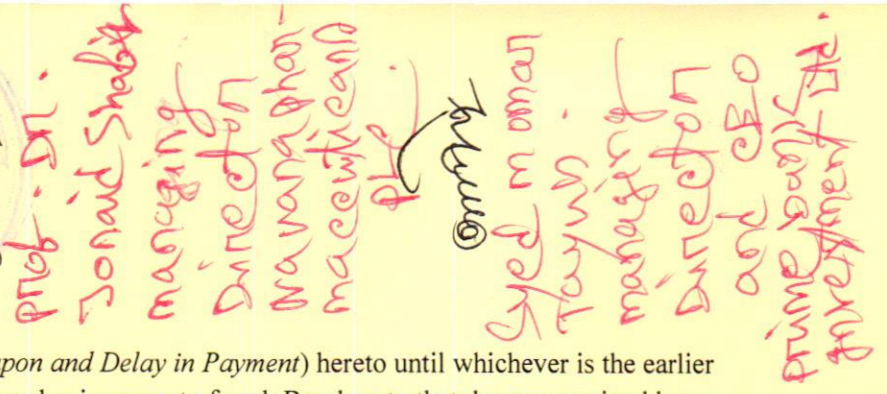 Prof. Dr.
Jonaid Shabir
managing
Director
Navana phar-
maceuticals
PLC.
Syed m omar
Tayub
managing
Director
and CEO
prime bank
investment Ltd.
pon and Delay in Payment) hereto until whichever is the earlier